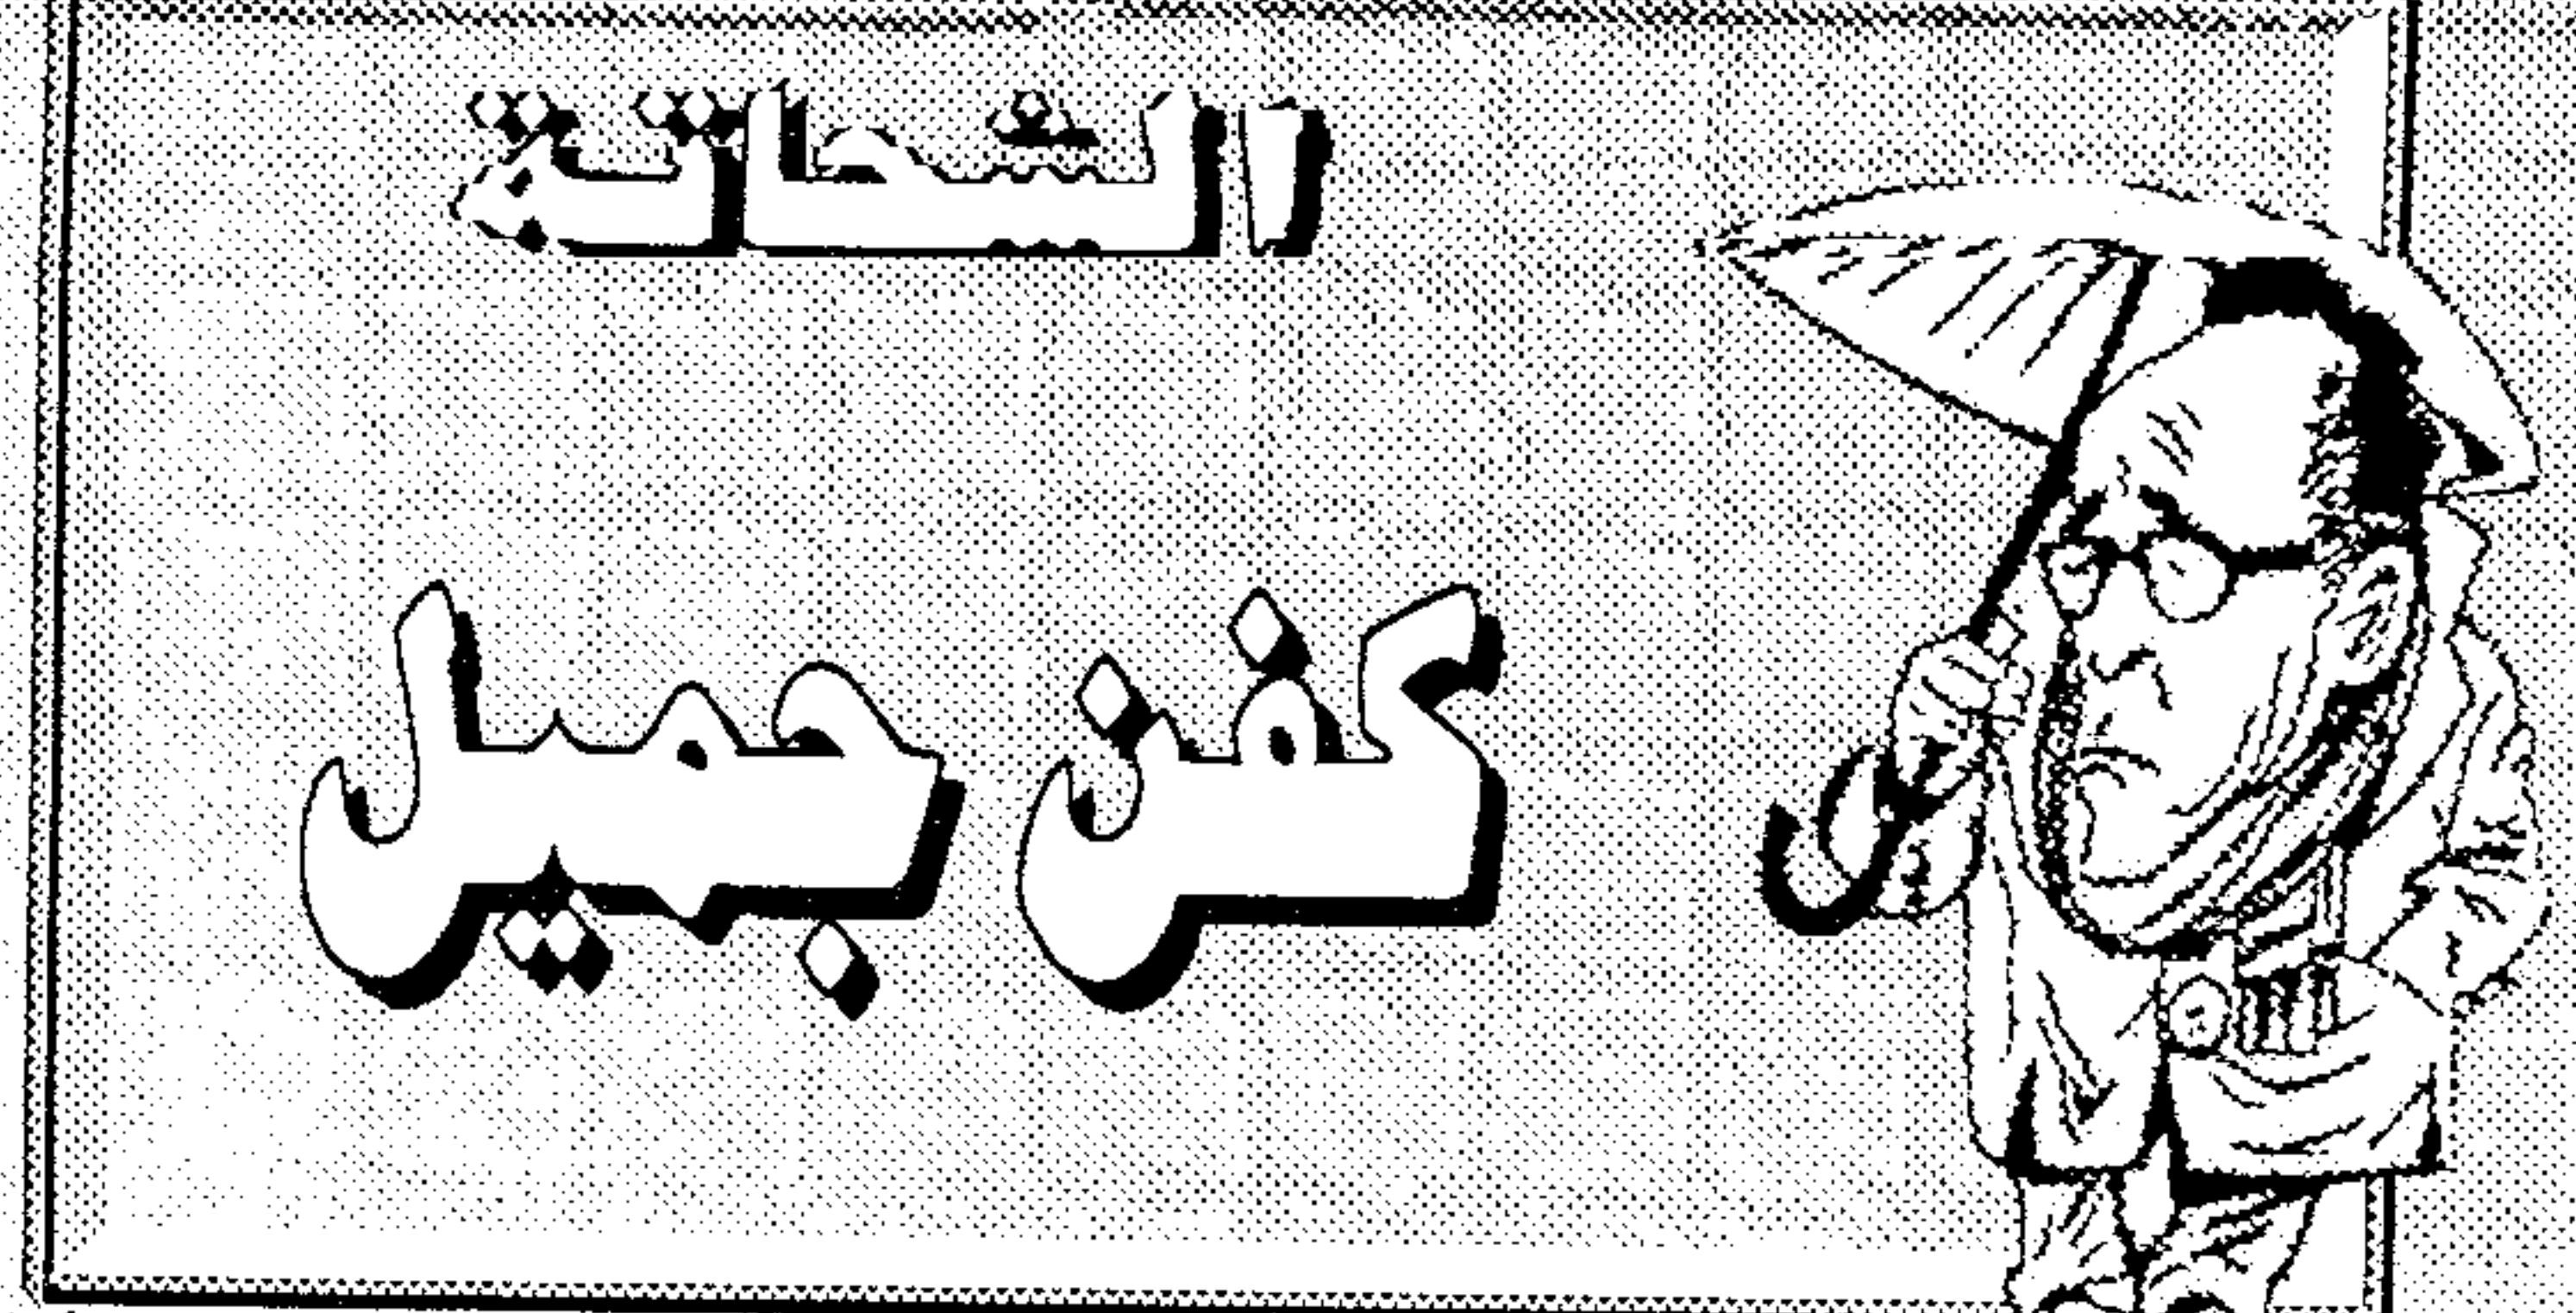 الشحاتة
كفن جميل